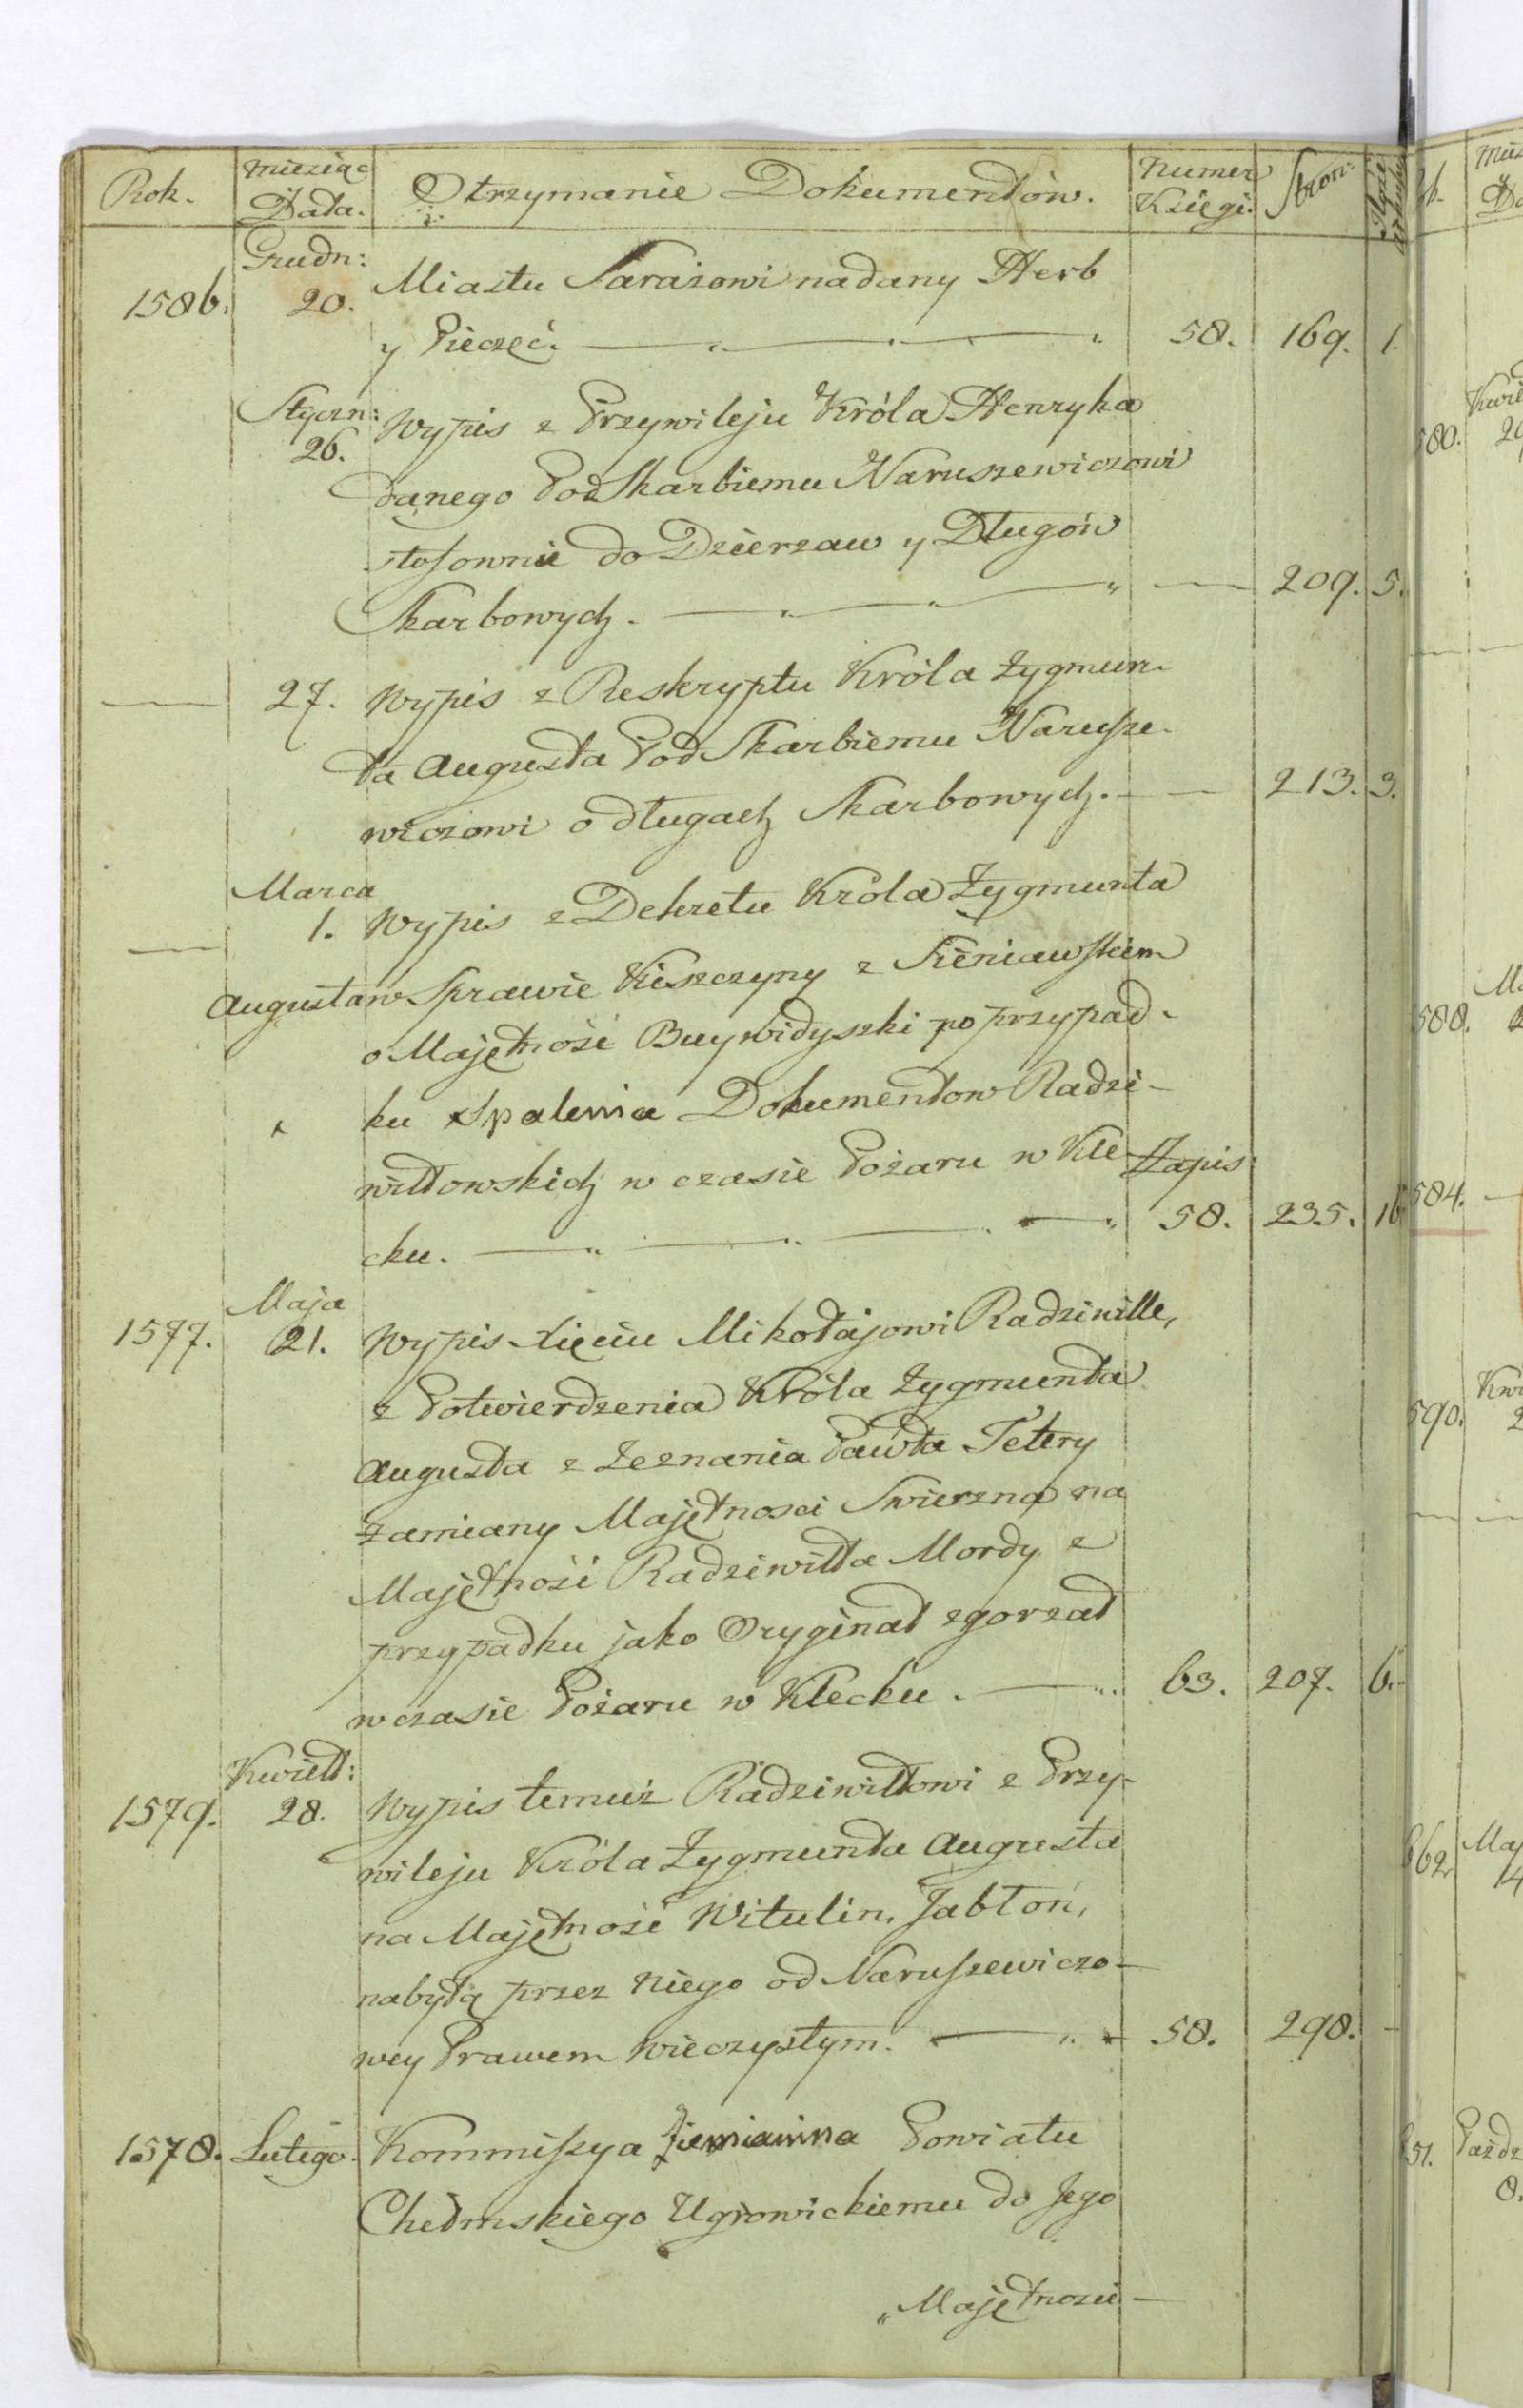 Rok. Miesiąc Data. Otrzymanie Dokumentów. Numer Księgi: Stron:
1586. Grudn: 20. Miastu Surażowi nadany Herb
y Pieczęć. 58. 169. 1.
Styczn: 26. Wypis z Przywileju Króla Henryka
danego Podskarbiemu Naruszewiczowi
stosownie do Dzierzaw y Długów
Skarbowych. 209. 5.
27. Wypis z Reskryptu Króla Zygmun-
ta Augusta Podskarbiemu Narusze-
wiczowi o długach Skarbowych. 213. 3.
Marca 1. Wypis z Dekretu Króla Zygmunta
Augusta w Sprawie Kiszczyny z Sieniawskiem
o Majętność Buywidyszki po przypad-
ku Spalenia Dokumentow Radzi-
wiłłowskich w czasie Pożaru w Kle- Zapis:
cku. 58. 235. 16
1577. Maja 21. Wypis Xięciu Mikołajowi Radziwille,
z Potwierdzenia Króla Zygmunta
Augusta z Zeznania Pawła Tetery
zamiany Majętnosci Swierzna na
Majętność Radziwiłła Mordy z
przypadku jako Oryginał zgorzał
w czasie Pożaru w Klecku. 63. 207. 6.
1579. Kwiet: 28. Wypis temuż Radziwiłłowi z Przy-
wileju Króla Zygmunta Augusta
na Majętność Witulin, Jabłoń,
nabytą przez niego od Naruszewiczo-
wey Prawem wieczystym. 58. 298.
1578. Lutego. Kommissya Ziemianina Powiatu
Chełmskiego Uhrowickiemu do Jego
„Majętnosci
580.
588.
584.
590.